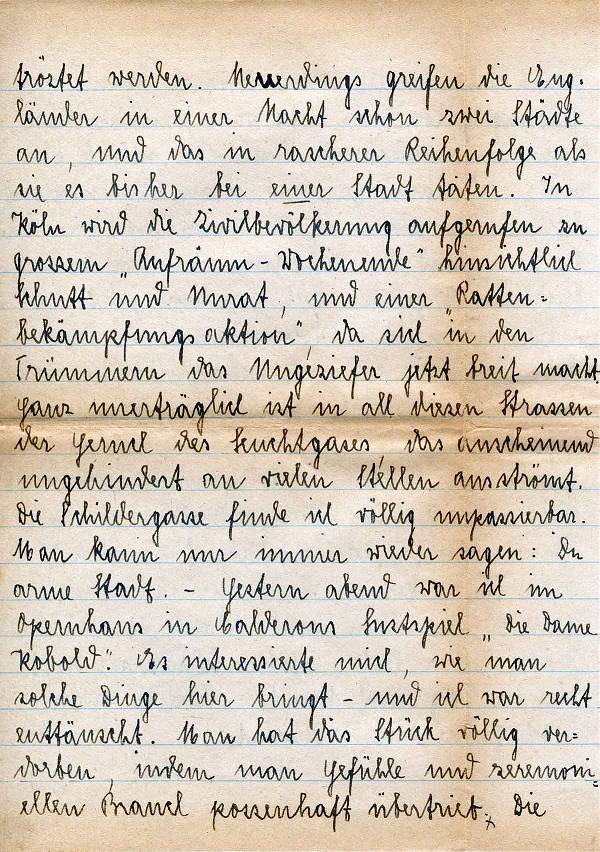 tröstet werden. Neuerdings greifen die Eng-
länder in einer Nacht schon zwei Städte
an, und das in rascherer Reihenfolge als
sie es bisher bei einer Stadt taten. In
Köln wird die Zivilbevölkerung aufgerufen zu
grossem „Aufräum-Wochenende" hinsichtlich
Schutt und Unrat, und einer „Ratten=
bekämpfungsaktion", da sich in den
Trümmern das Ungeziefer jetzt breit macht.
Ganz unerträglich ist in all diesen Strassen
der Geruch des Leuchtgases, das anscheinend
ungehindert an vielen Stellen ausströmt.
Die Schildergasse finde ich völlig unpassierbar.
Man kann nur immer wieder sagen: Du
arme Stadt. – Gestern abend war ich im
Opernhaus in Calderons Lustspiel „Die Dame
Kobold". Es interessierte mich, wie man
solche Dinge hier bringt – und ich war recht
enttäuscht. Man hat das Stück völlig ver=
dorben, indem man Gefühle und zeremoni=
ellen Brauch possenhaft übertrieb. Die